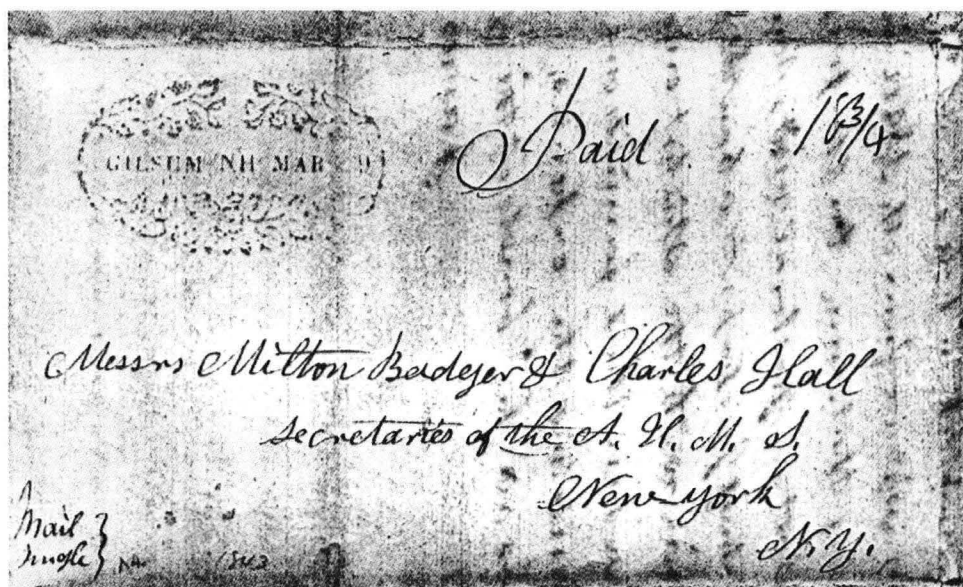 GILSUM NH MAR 9
Paid 18 3/4
Messrs Milton Badger & Charles Hall
secretaries of the A. H. M. S.
New-york
N.Y.
Mail
single
1843